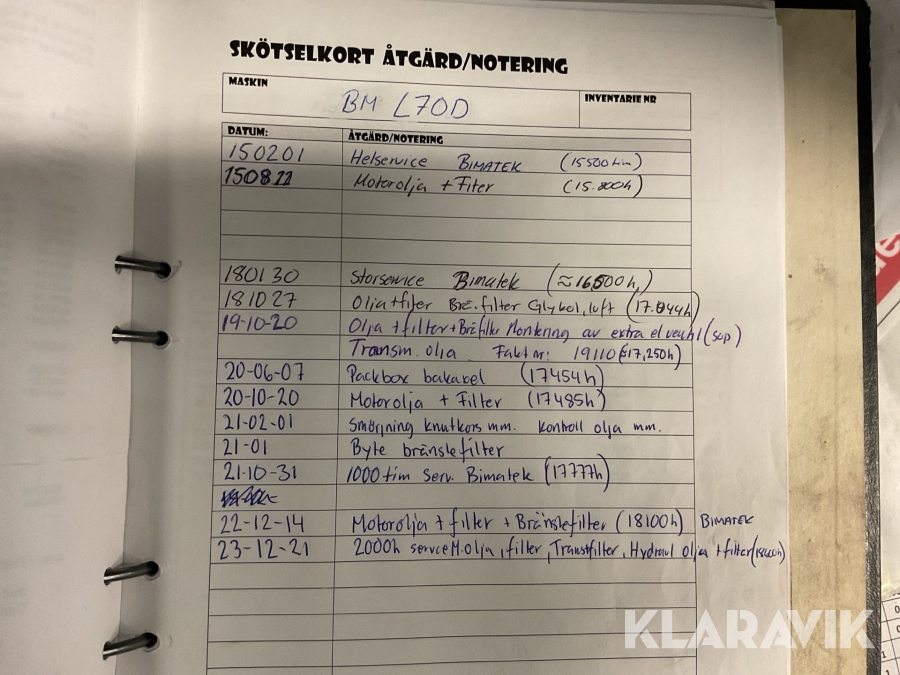 SKÖTSELKORT ÅTGÄRD/NOTERING
MASKIN
BM L70D
INVENTARIE NR
DATUM: ÅTGÄRD/NOTERING
150201 Helservice BIMATEK (15500tim)
150811 Motorolja + Fiter (15.800h)
180130 Storservice Bimatek (≈16500h)
181027 Olja+filter Brä.filter Glykol, luft (17.044h)
19-10-20 Olja + filter + Bräfilter Montering av extra el ventil (sop)
Transm. olja Fakt nr: 19110 (≈17,250h)
20-06-07 Packbox bakaxel (17454h)
20-10-20 Motorolja + Filter (17485h)
21-02-01 Smörjning knutkors mm. kontroll olja mm.
21-01 Byte bränslefilter
21-10-31 1000 tim Serv. Bimatek (17777h)
22-12-14 Motorolja + filter + Bränslefilter (18100h) BIMATEK
23-12-21 2000h service M.olja, filter, Transfilter, Hydraul olja + filter
KLARAVIK